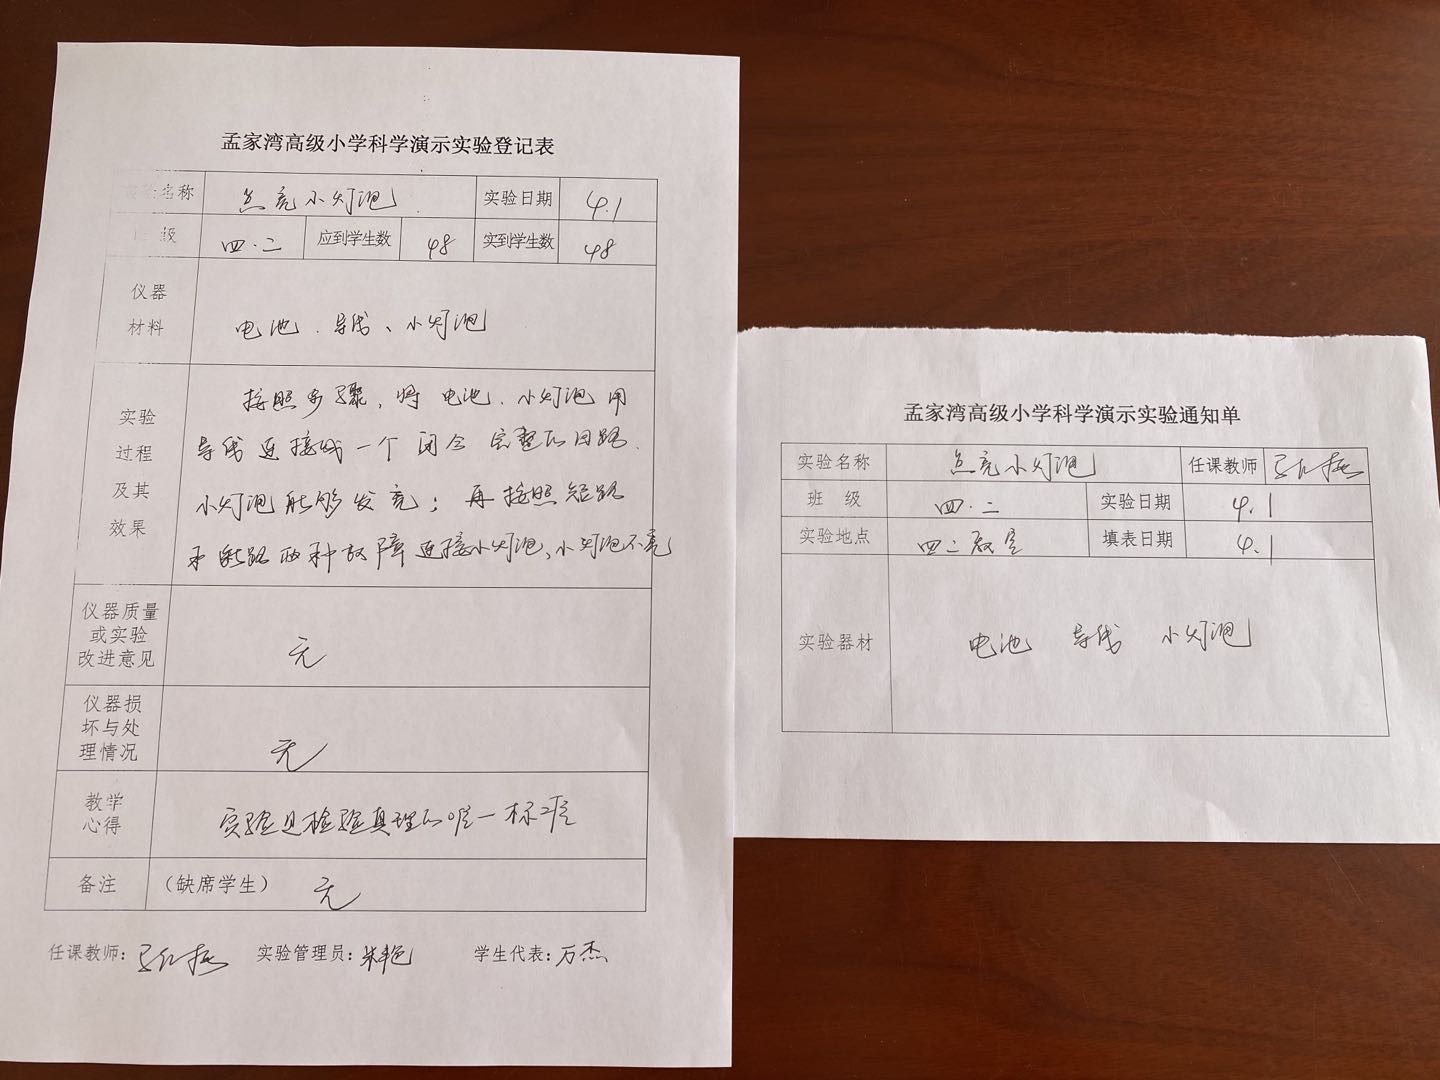 孟家湾高级小学科学演示实验登记表
实验名称 点亮小灯泡 实验日期 4.1
班 级 四.二 应到学生数 48 实到学生数 48
仪器
材料
电池、导线、小灯泡
实验
过程
及其
效果
按照步骤,将电池、小灯泡用
导线连接成一个闭合完整的回路.
小灯泡能够发亮;再按照短路
和断路两种故障连接小灯泡,小灯泡不亮
仪器质量
或实验
改进意见
无
仪器损
坏与处
理情况
无
教学
心得
实验是检验真理的唯一标准
备注 (缺席学生) 无
任课教师: 实验管理员:朱艳 学生代表:万杰
孟家湾高级小学科学演示实验通知单
实验名称 点亮小灯泡 任课教师
班 级 四.二 实验日期 4.1
实验地点 四二教室 填表日期 4.1
实验器材 电池 导线 小灯泡